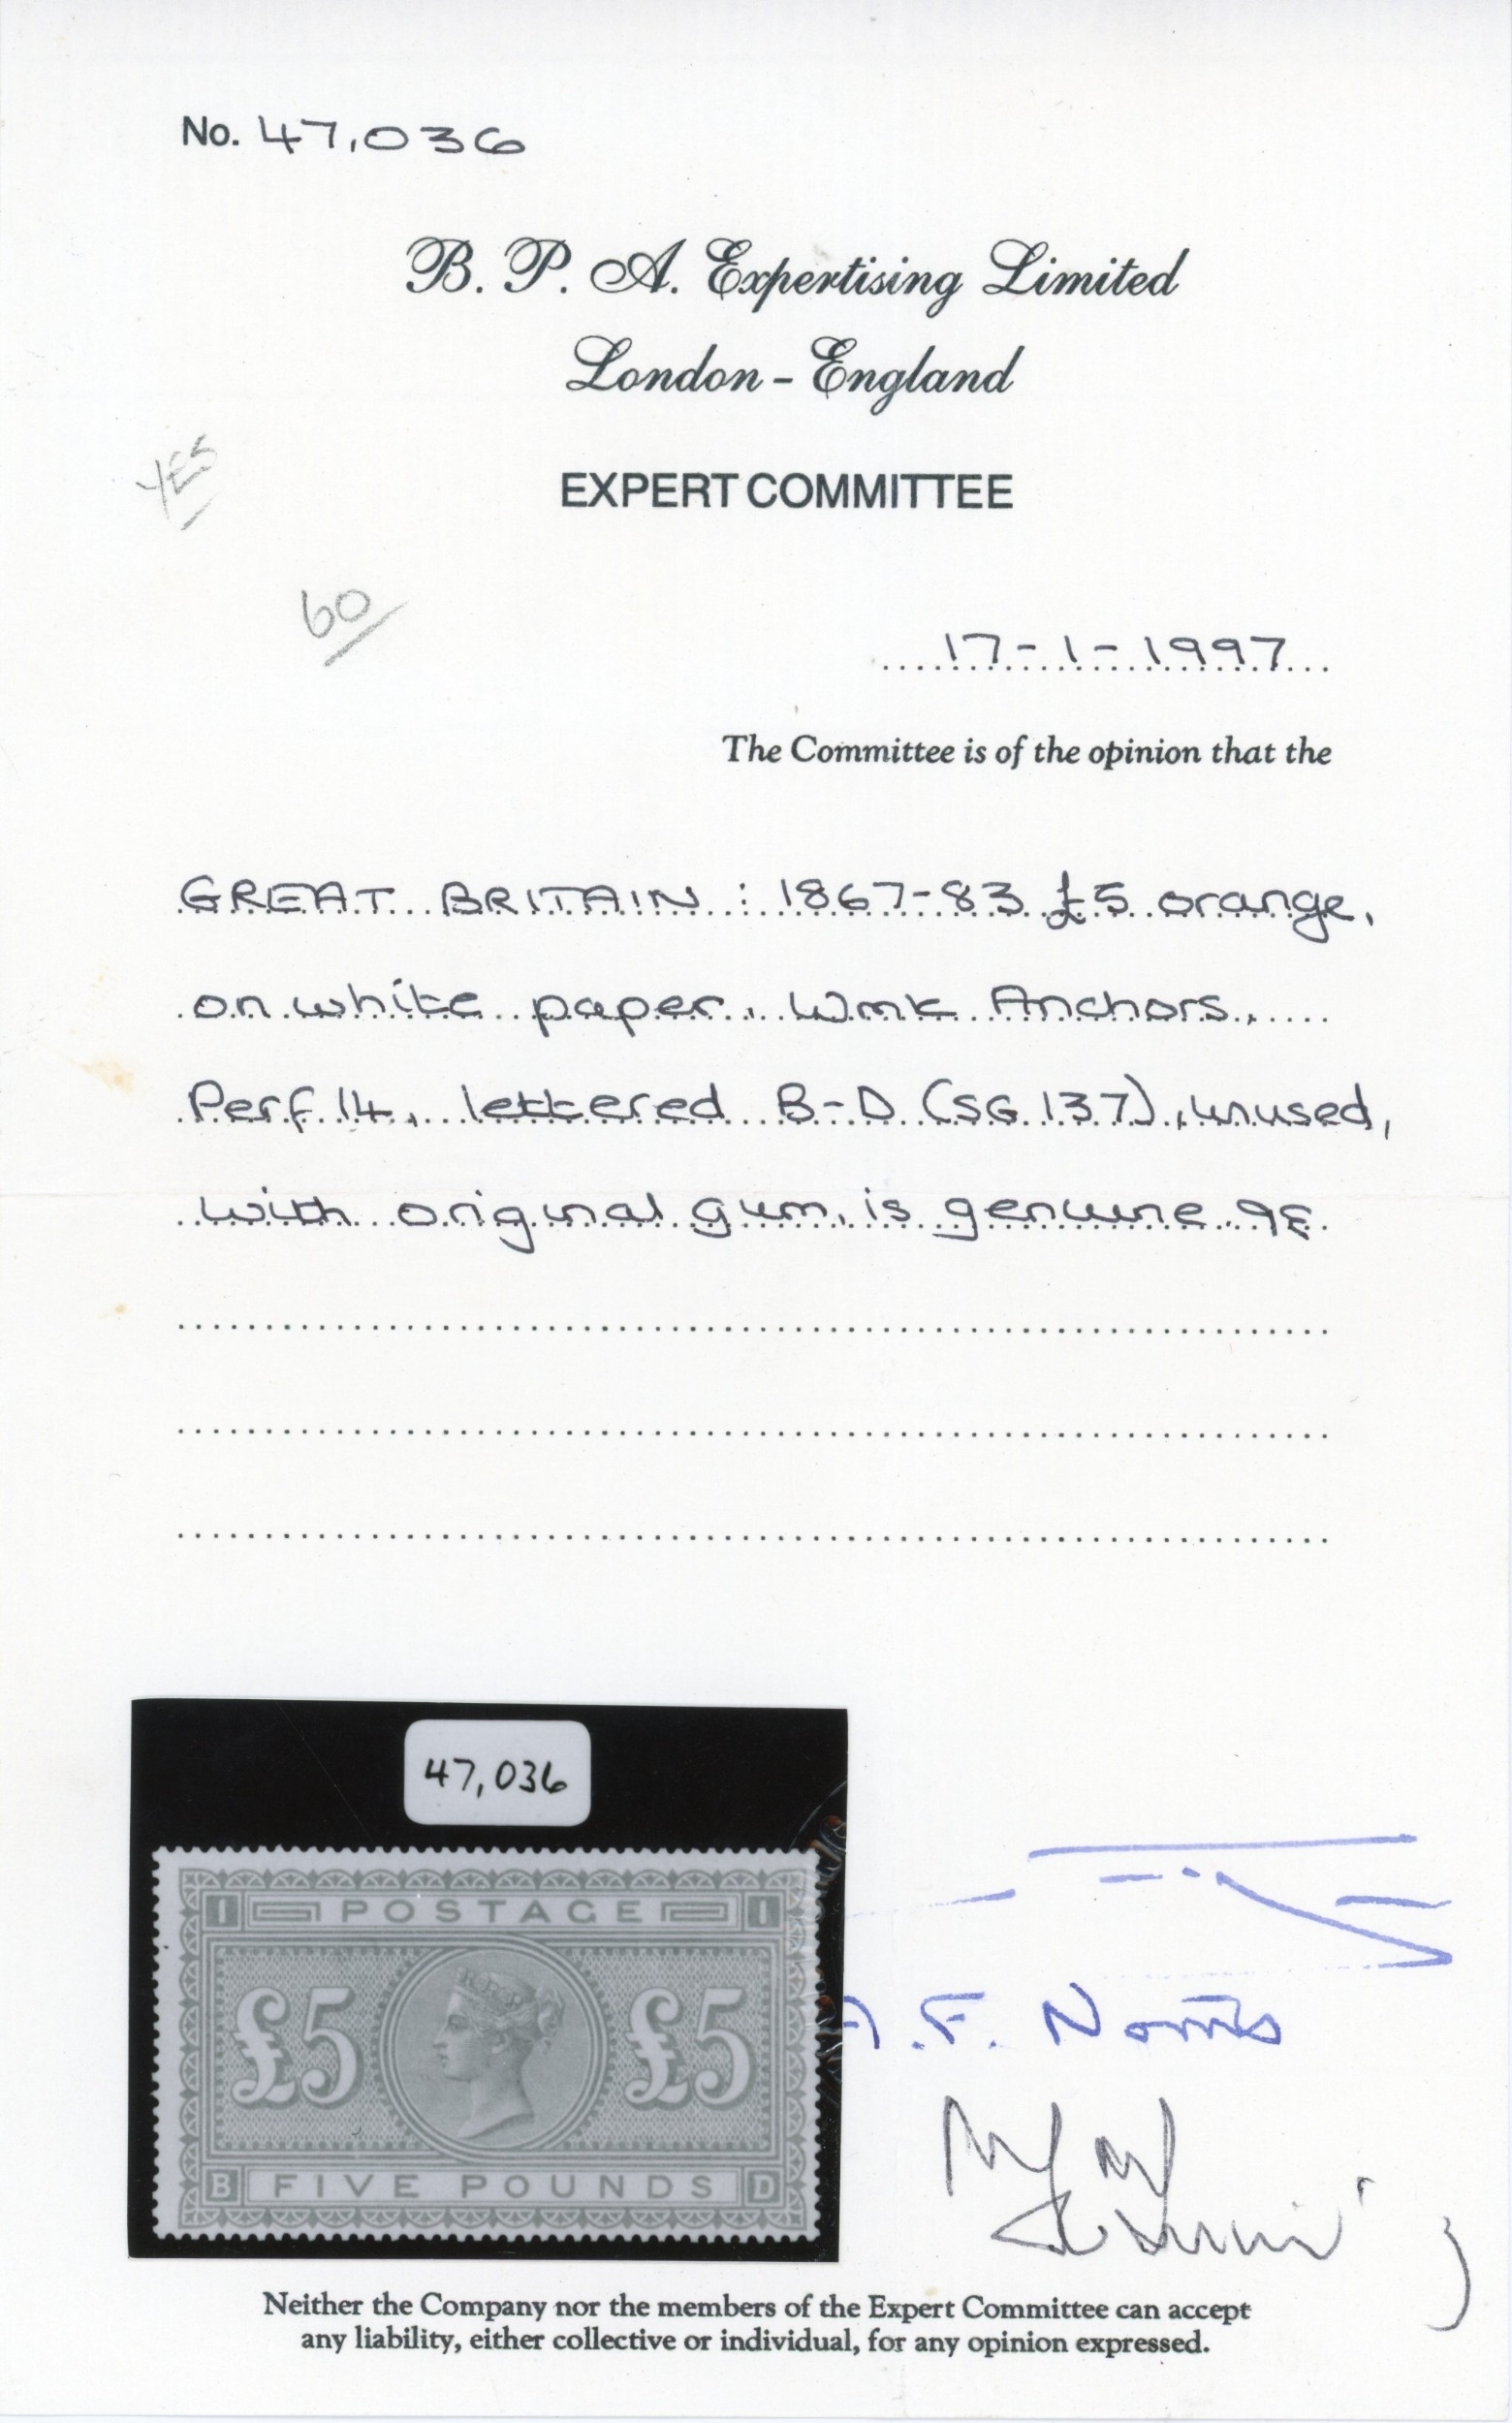 No. 47,036
B. P. A. Expertising Limited
London - England
YES
EXPERT COMMITTEE
60
17-1-1997
The Committee is of the opinion that the
GREAT BRITAIN : 1867-83 £5 orange,
on white paper, Wmk Anchors,
Perf. 14, lettered B-D (SG 137), unused,
with original gum, is genuine.
47,036
I POSTAGE I
£5 £5
B FIVE POUNDS D
A. F. Norris
Neither the Company nor the members of the Expert Committee can accept
any liability, either collective or individual, for any opinion expressed.